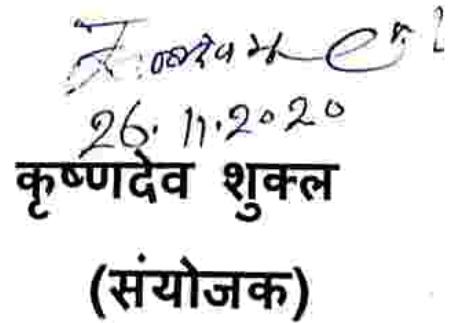 26.11.2020
कृष्णदेव शुक्ल
(संयोजक)